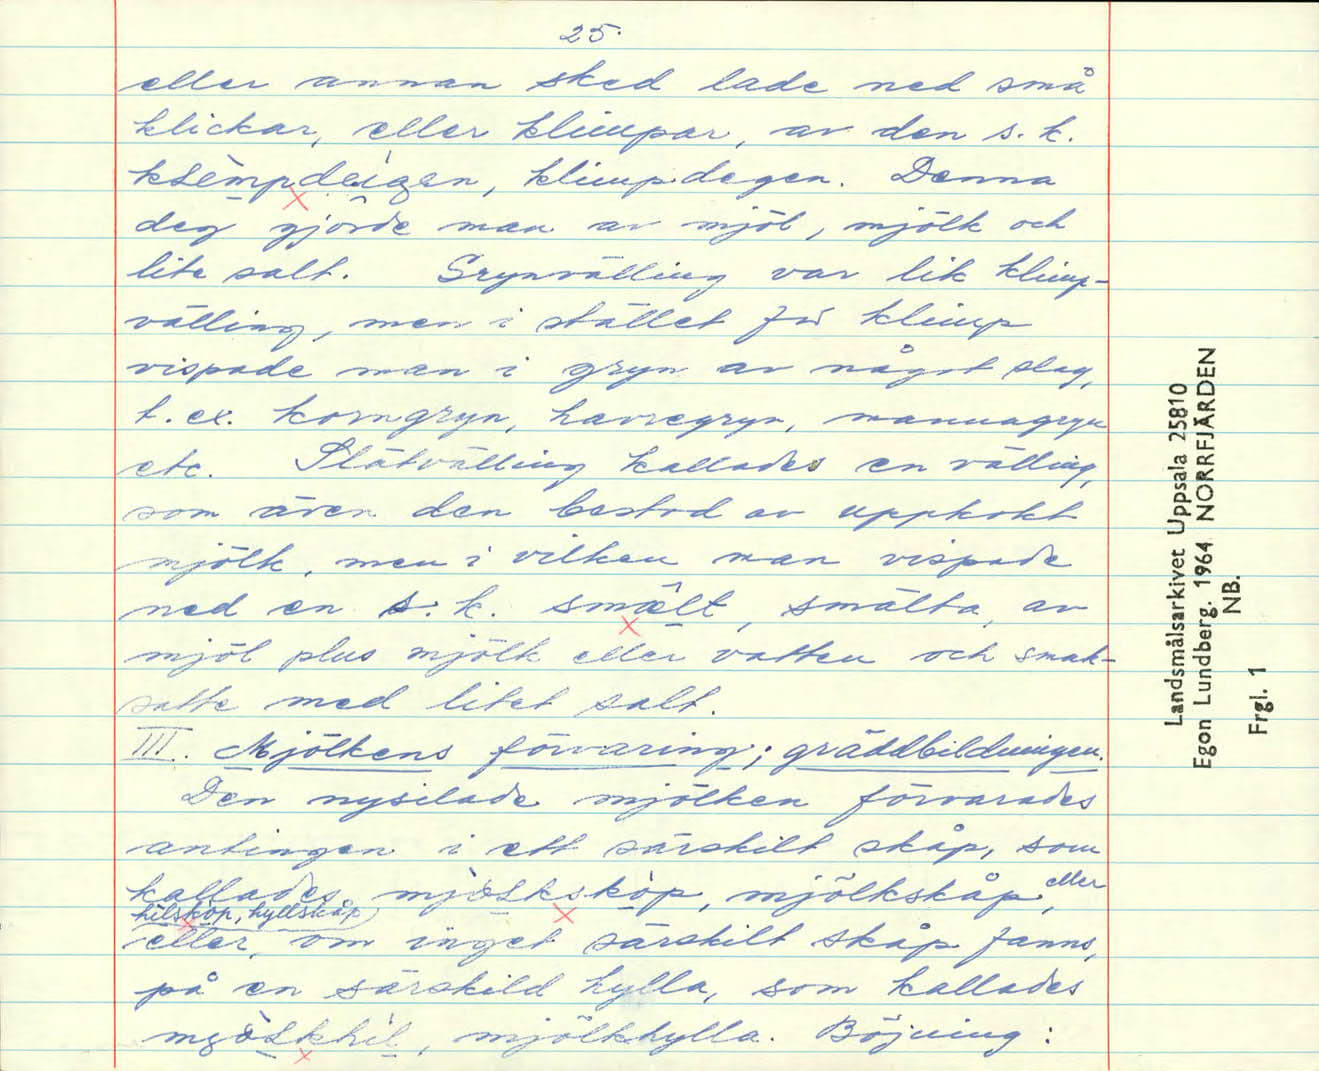 25.
eller annan sked lade ned små
klickar, eller klimpar, av den s.k.
klèmpdèigen, klimpdegen. Denna
deg gjorde man av mjöl, mjölk och
lite salt. Grynvälling var lik klimp-
välling, men i stället för klimp
vispade man i gryn av något slag,
t.ex. korngryn, havregryn, mannagryn
etc. Slätvälling kallades en välling,
som även den bestod av uppkokt
mjölk, men i vilken man vispade
ned en s.k. smælt, smälta, av
mjöl plus mjölk eller vatten och smak-
satte med litet salt.
III. Mjölkens förvaring; gräddbildningen.
Den nysilade mjölken förvarades
antingen i ett särskilt skåp, som
kallades mjölkskòp, mjölkskåp, eller
hilskòp, hyllskåp)
eller, om inget särskilt skåp fanns,
på en särskild hylla, som kallades
mjölkhil, mjölkhylla. Böjning:
Landsmålsarkivet Uppsala 25810
Egon Lundberg. 1964 NORRFJÄRDEN
NB.
Frgl. 1